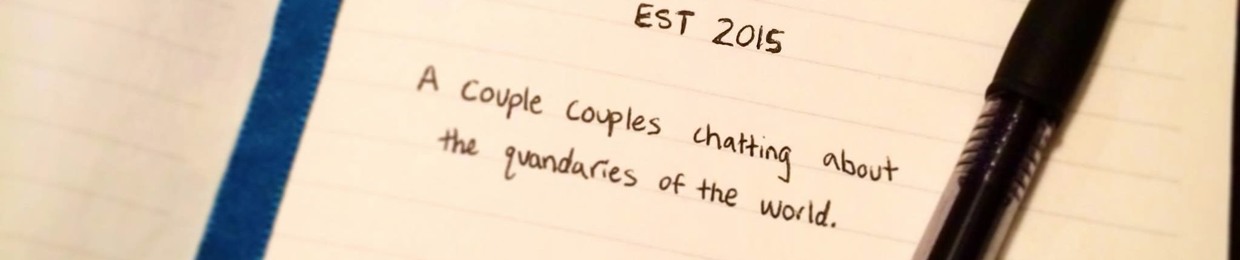 EST 2015
A couple couples chatting about
the quandaries of the world.